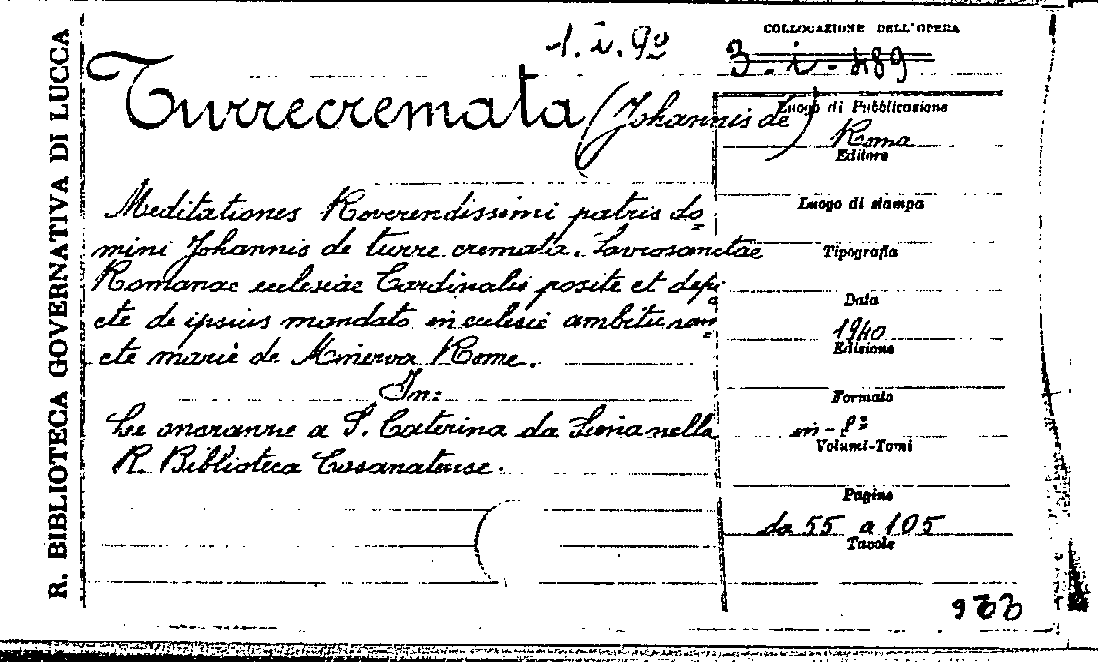 R. BIBLIOTECA GOVERNATIVA DI LUCCA
1. i. 92
COLLOCAZIONE DELL'OPERA
3. i. 489
Turrecremata (Johannis de)
Meditationes Reverendissimi patris do=
mini Johannis de turre cremata. Sacrosanctae
Romanae ecclesiae Cardinalis posite et depi
cte de ipsius mandato in ecclesie ambitu san=
cte marie de Minerva Rome.
In:
Le onoranze a S. Caterina da Siena nella
R. Biblioteca Casanatense.
Luogo di Pubblicazione
Roma
Editore
Luogo di stampa
Tipografia
Data
1940
Edizione
Formato
in-8º
Volumi-Tomi
Pagine
da 55 a 105
Tavole
933